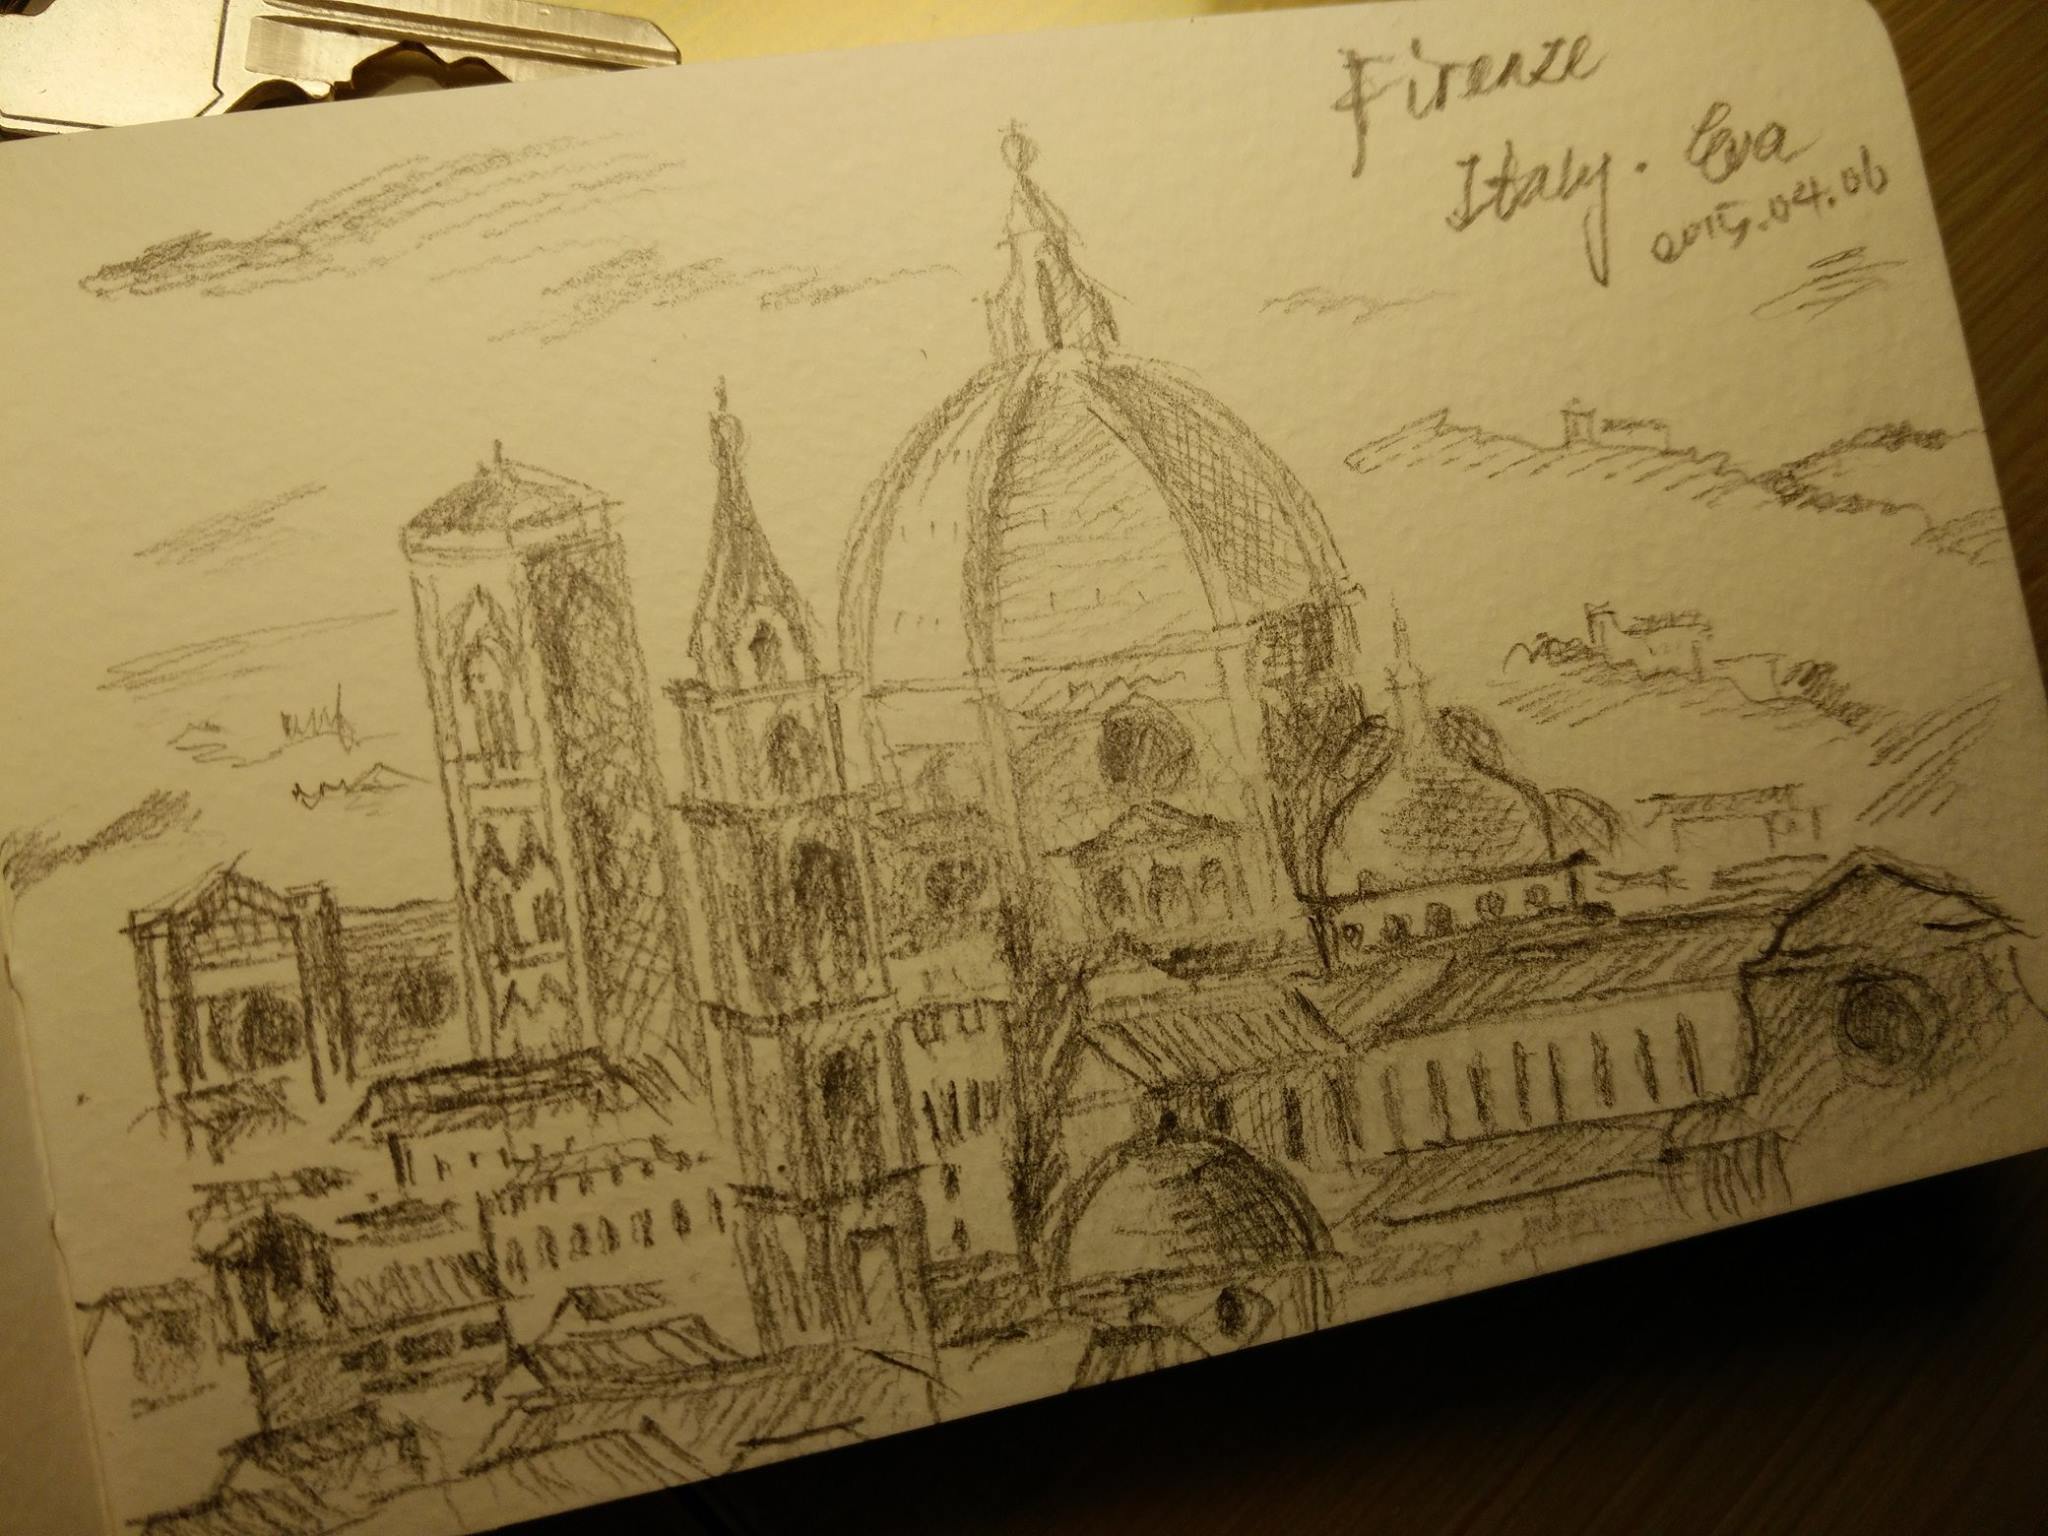 Firenze
Italy. Eva
2015.04.06